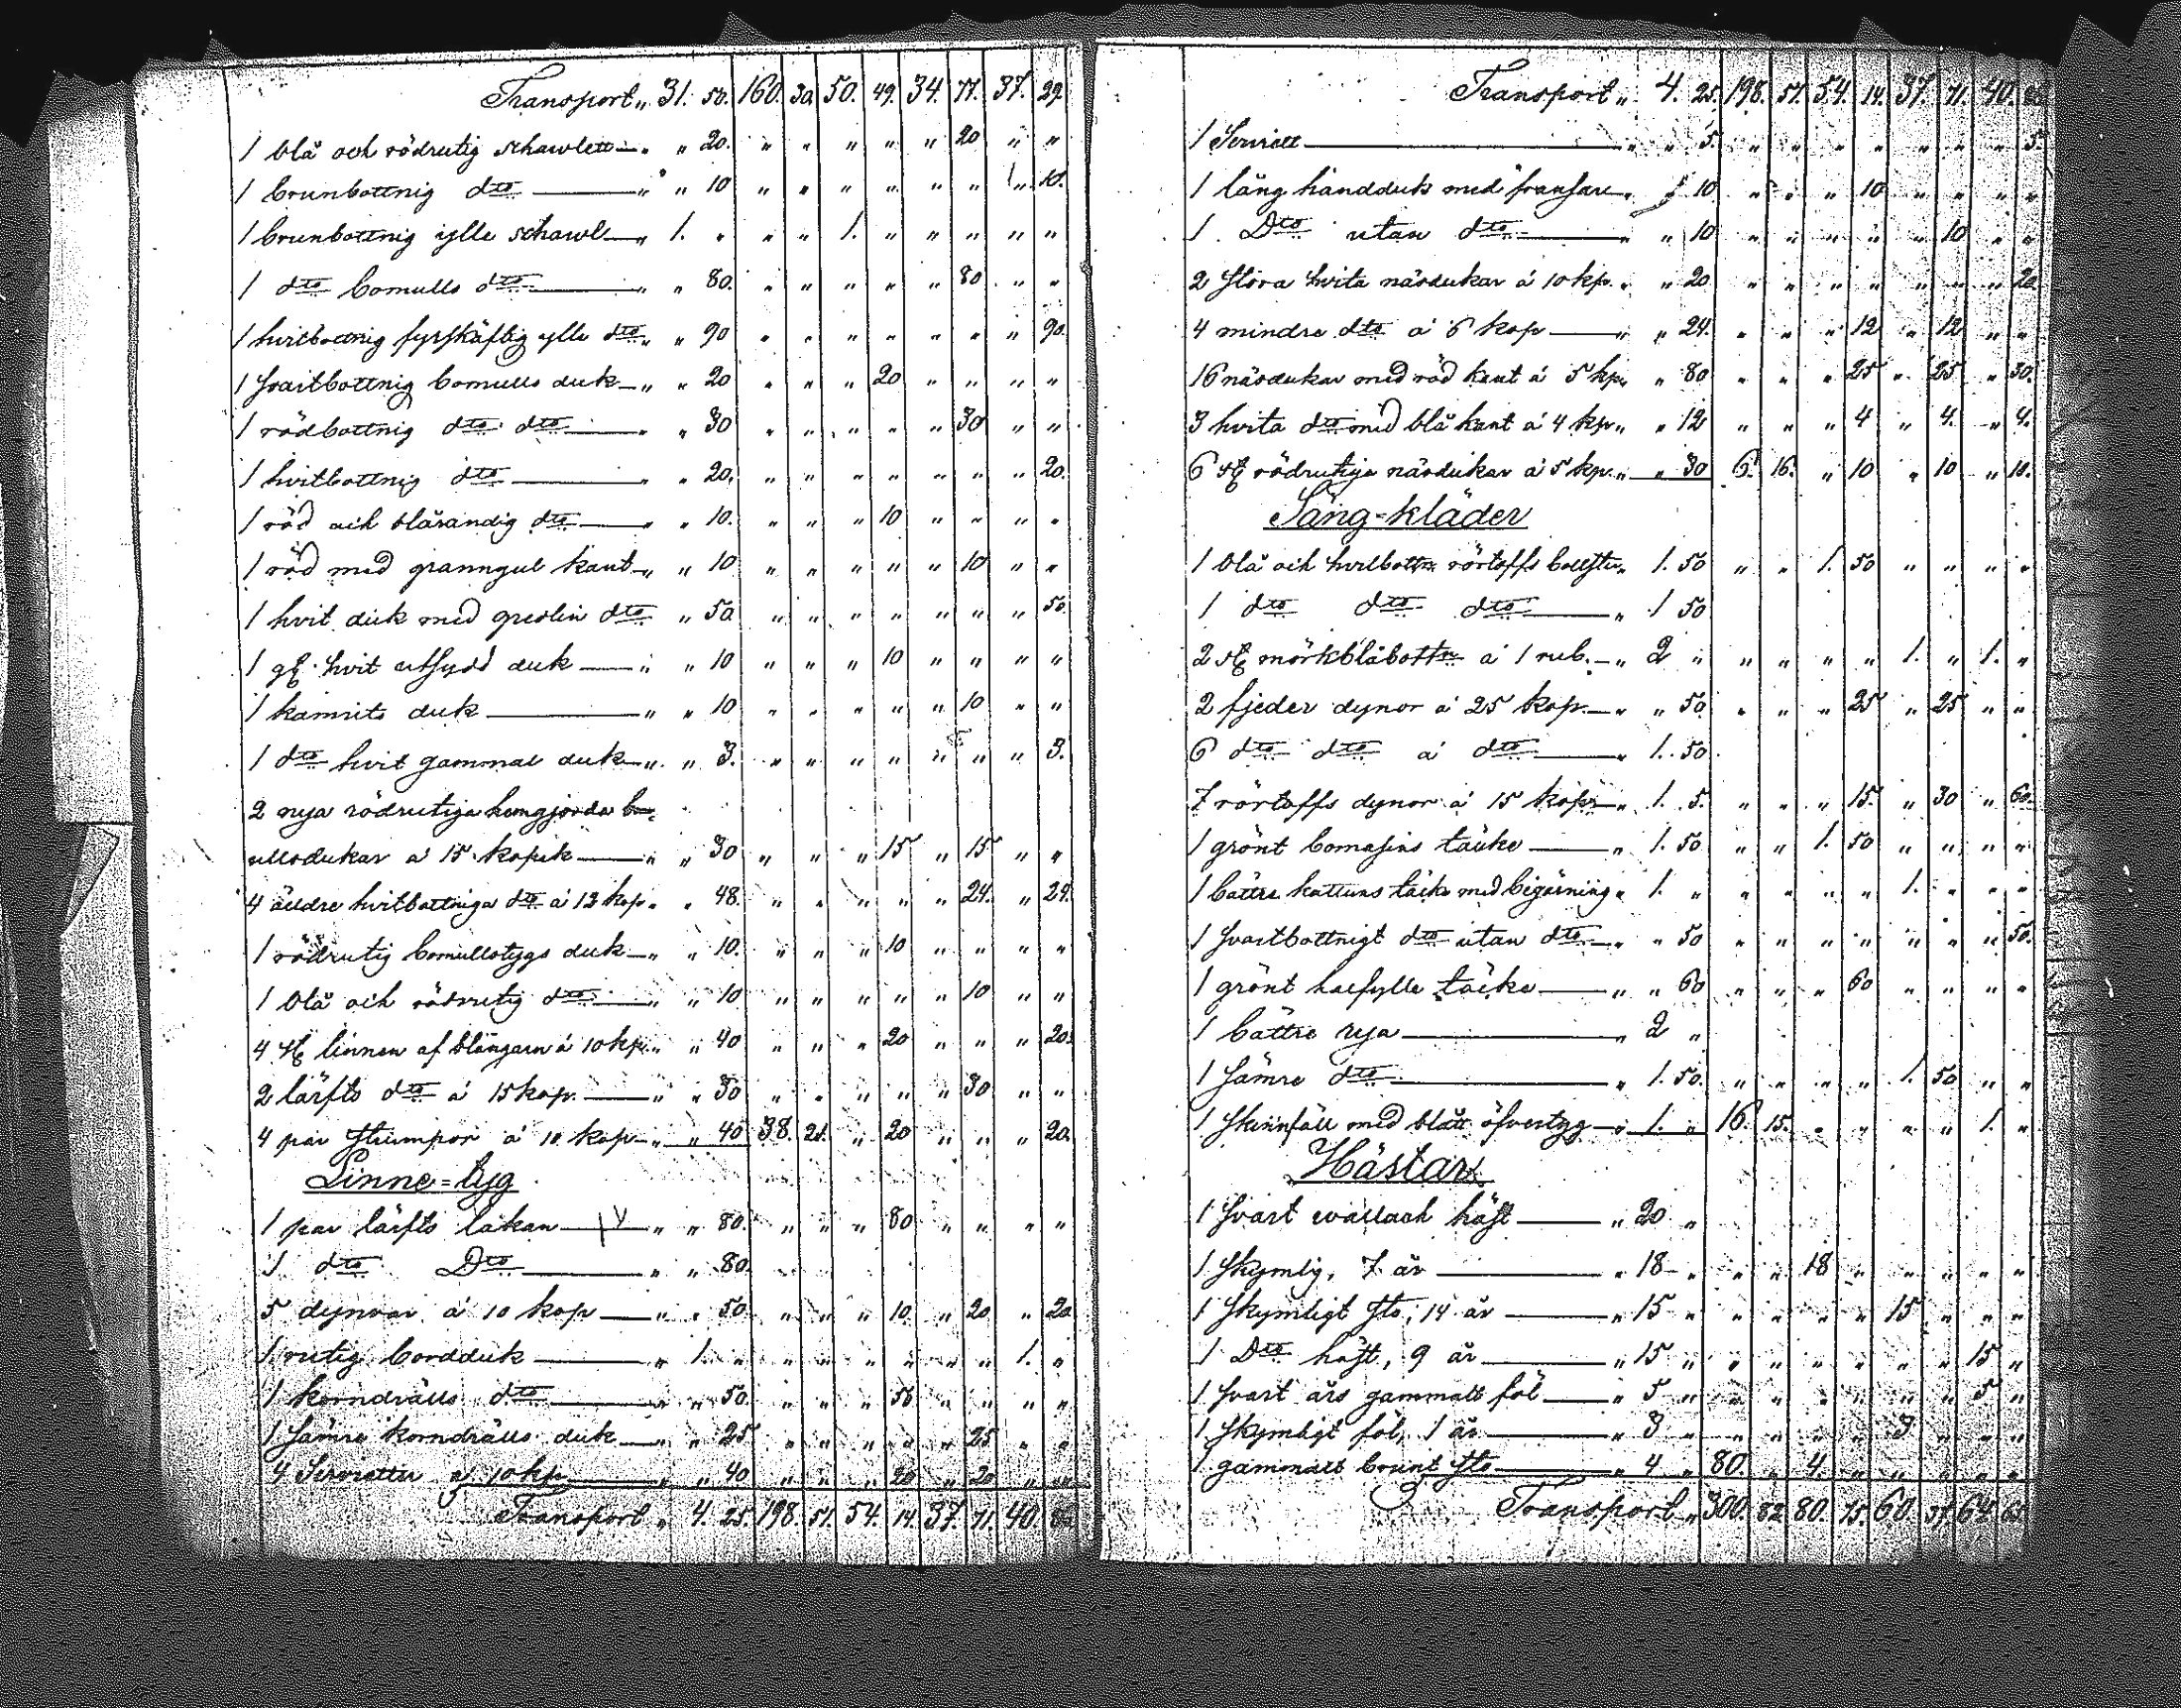 Transport „ 31. 50. 160. 30. 50. 49. 34. 77. 37. 29.
1 blå och rödrutig schawlett „ „ 20. „ „ „ „ „ 20 „ „
1 brunbottnig dto „ „ 10 „ „ „ „ „ „ „ 10.
1 brunbottnig ylle schawl „ 1. „ „ „ 1. „ „ „ „ „
1 dto bomulls dto „ „ 80. „ „ „ „ „ 80 „ „
1 hvitbottnig fyrskäftig ylle dto „ „ 90 „ „ „ „ „ „ „ 90.
1 svartbottnig bomulls duk „ „ 20 „ „ „ 20 „ „ „ „
1 rödbottnig dto dto „ „ 30 „ „ „ „ „ 30 „ „
1 hvitbottnig dto „ „ 20. „ „ „ „ „ „ „ 20.
1 röd och blårandig dto „ „ 10. „ „ „ 10 „ „ „ „
1 röd med granngul kant „ „ 10 „ „ „ „ „ 10 „ „
1 hvit duk med gredlin dto „ 50 „ „ „ „ „ „ „ 50.
1 gl. hvit utsydd duk „ „ 10 „ „ „ 10 „ „ „ „
1 kamrits duk „ „ 10 „ „ „ „ „ 10 „ „
1 dto hvit gammal duk „ „ 3. „ „ „ „ „ „ „ 3.
2 nya rödrutiga hemgjorda bo-
mullsdukar á 15 kopek „ „ 30 „ „ „ 15 „ 15 „ „
4 äldre hvitbottniga dto á 12 kop „ „ 48. „ „ „ „ „ 24. „ 24.
1 rödrutig bomullstygs duk „ „ 10. „ „ „ 10 „ „ „ „
1 blå och rödrutig dto „ „ 10 „ „ „ „ „ 10 „ „
4 st linnen af blångarn á 10 kp. „ „ 40 „ „ „ 20 „ „ „ 20.
2 lärfts dto á 15 kop. „ „ 30 „ „ „ „ „ 30 „ „
4 par strumpor á 10 kop „ „ 40 38. 21. „ 20 „ „ „ 20.
Linne=tyg
1 par lärfts lakan „ „ 80. „ „ „ 80 „ „ „ „
1 dto Dto „ „ 80.
5 dynvar á 10 kop „ „ 50. „ „ „ 10. „ 20 „ 20
1 rutig bordduk „ 1. „ „ „ „ „ „ „ 1. „
1 korndrälls dto „ „ 50. „ „ „ 50 „ „ „ „
1 sämre korndrälls duk „ „ 25 „ „ „ „ „ 25 „ „
4 Servietter á 10 kp „ „ 40 „ „ „ 20 „ 20 „ „
Transport „ 4. 25. 198. 51. 54. 14. 37. 71. 40.
Transport „ 4. 25. 198. 51. 54. 14. 37. 71. 40.
1 Serviett „ „ 5. „ „ „ „ „ „ „ 5.
1 lång handduk med fransar „ „ 10 „ „ „ 10 „ „ „ „
1 Dto utan dto „ „ 10 „ „ „ „ „ 10 „ „
2 stora hvita näsdukar á 10 kp. „ „ 20 „ „ „ „ „ „ „ 20
4 mindre dto á 6 kop „ „ 24. „ „ „ 12 „ 12 „ „
16 näsdukar med röd kant á 5 kp „ „ 80 „ „ „ 25 „ 25 „ 30.
3 hvita dto med blå kant á 4 kp „ „ 12 „ „ „ 4 „ 4. „ 4.
6 st rödrutiga näsdukar á 5 kp. „ „ 30 6. 16. „ 10 „ 10 „ 10.
Säng=kläder
1 blå och hvitbottn rörtoffs bollster „ 1. 50 „ „ 1. 50 „ „ „ „
1 dto dto dto „ 1 50
2 st mörkblåbottn á 1 rub. „ 2 „ „ „ „ „ 1. „ 1. „
2 fjeder dynor á 25 kop. „ „ 50. „ „ „ 25 „ 25 „ „
6 dto dto á dto „ 1. 50.
7 rörtoffs dynor á 15 kop „ 1. 5. „ „ „ 15. „ 30 „ 60.
1 grönt bomasins täcke „ 1. 50 „ „ 1. 50 „ „ „ „
1 bättre kattuns täcke med bigärning „ 1. „ „ „ „ „ 1. „ „ „
1 svartbottnigt dto utan dto „ „ 50 „ „ „ „ „ „ „ 50.
1 grönt halfylle täcke „ „ 60 „ „ „ 60 „ „ „ „
1 bättre rya „ 2 „
1 sämre dto „ 1. 50. „ „ „ „ 1. 50 „ „
1 skinnfäll med blått öfvertyg „ 1. „ 16. 15. „ „ „ „ 1. „
Hästar
1 svart wallack häst „ 20 „
1 skymlig, 7 år „ 18 „ „ „ 18 „ „ „ „ „
1 skymligt sto, 14 år „ 15 „ „ „ „ „ 15 „ „ „
1 Dto häst, 9 år „ 15 „ „ „ „ „ „ „ 15 „
1 svart års gammalt föl „ 5 „ „ „ „ „ „ „ 5 „
1 skymligt föl, 1 år „ 3 „ „ „ „ „ 3 „ „ „
1 gammalt brunt sto „ 4 „ 80. „ 4. „ „ „ „ „
Transport „ 300. 82. 80. 75. 60. 64.